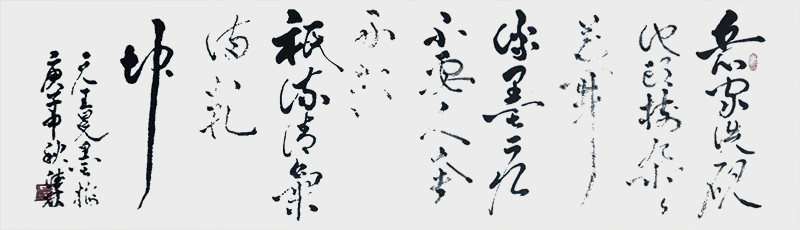 吾家洗砚
池头树朵々
花開
淡墨痕
不要人夸
好颜色
祇流清氣
满乾
坤
元王冕墨梅
庚子中秋